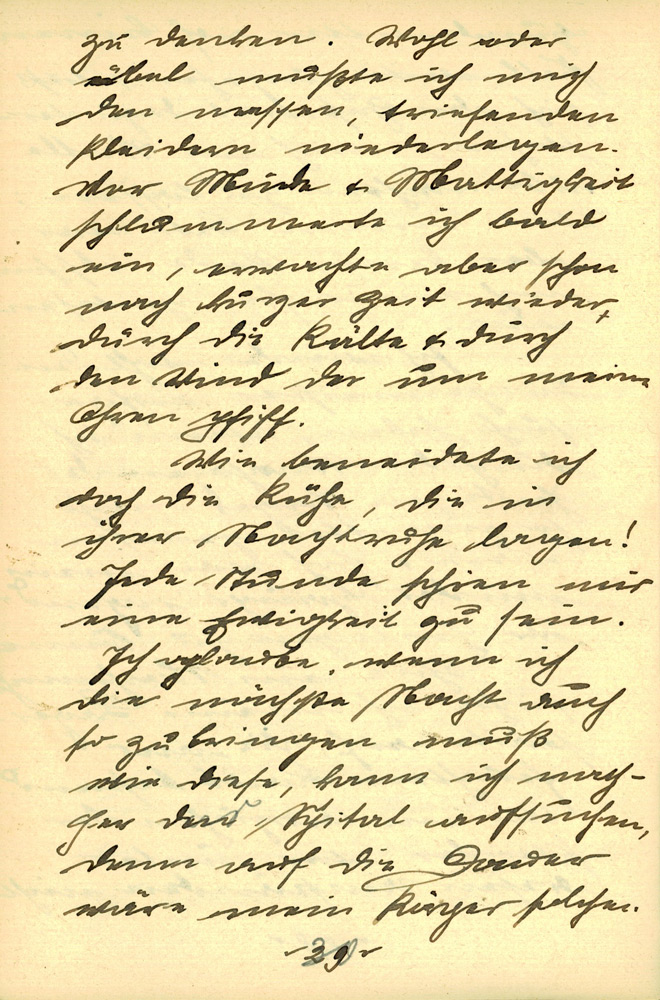 zu denken. Wohl oder
übel mußte ich mich
den nassen, triefenden
Kleidern niederlegen.
Vor Müde & Mattigkeit
schlummerte ich bald
ein, erwachte aber schon
nach kurzer Zeit wieder,
durch die Kälte & durch
den Wind der um meine
Ohren pfiff.
Wie beneidete ich
doch die Kühe, die in
ihrer Nachtruhe lagen!
Jede Stunde schien mir
eine Ewigkeit zu sein.
Ich glaube, wenn ich
die nächste Nacht auch
so zubringen muß
wie diese, kann ich nach-
her den Spital aufsuchen,
denn auf die Dauer
wäre mein Körper solchen
- 39 -